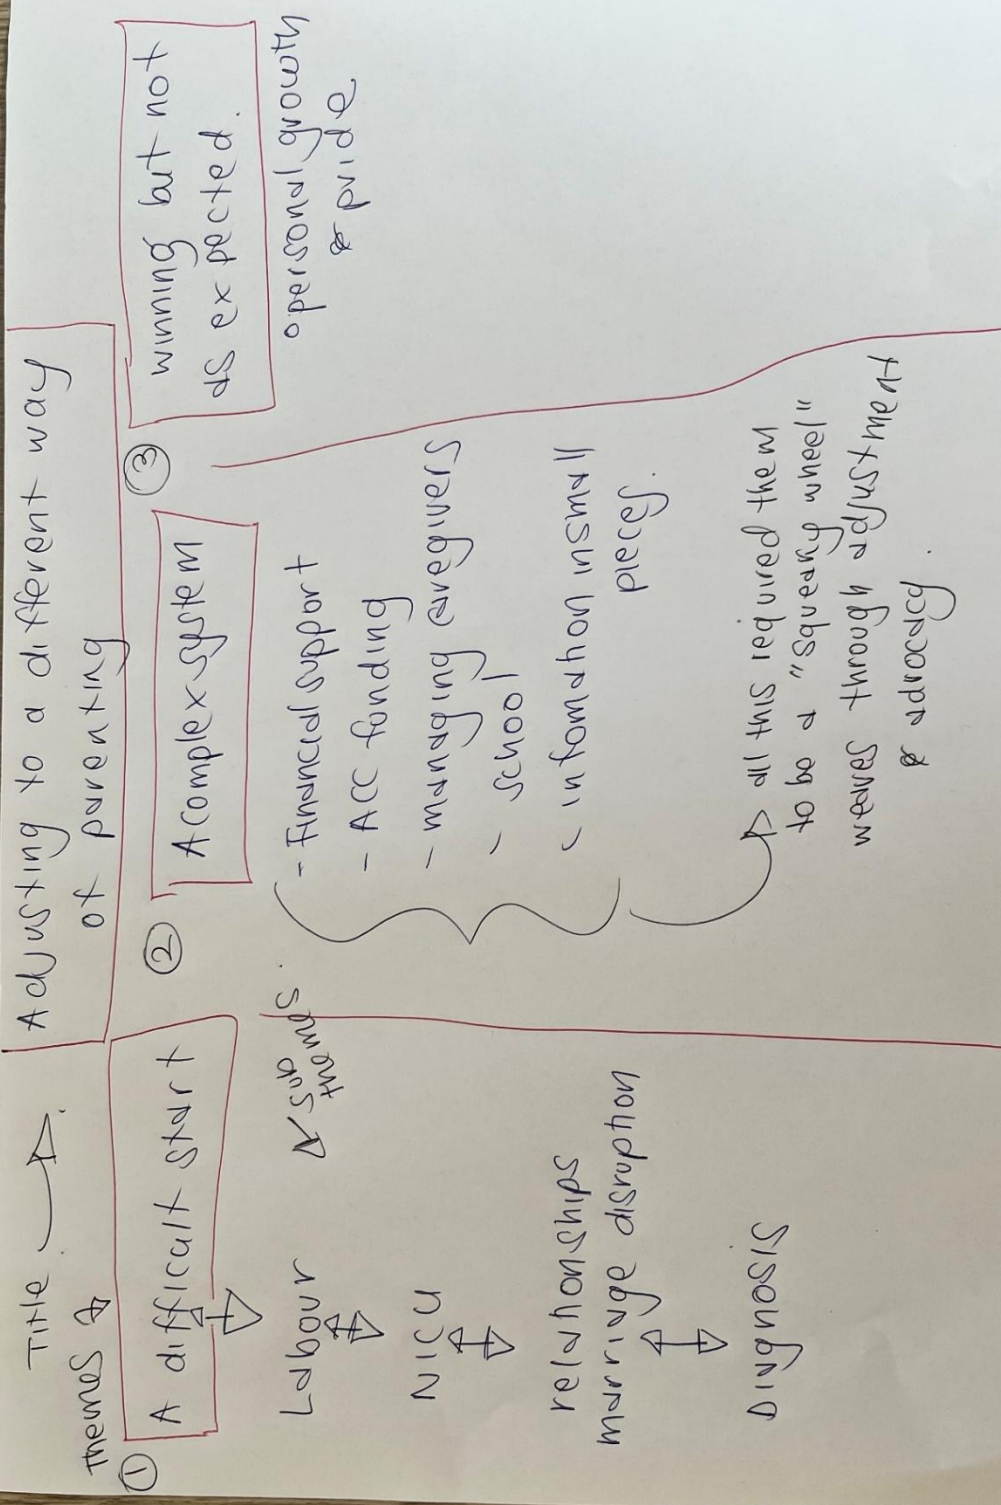 Title
Adjusting to a different way
of parenting
themes
①
A difficult start
sub
themes.
Labour
NICU
relationships
marriage disruption
Diagnosis
②
A complex system
- Financial support
- ACC fonding
- managing caregivers
- school
- infomation in small
pieces.
all this required them
to be a "squeaky wheel"
weaves through adjustment
& advocacy.
③
winning but not
as expected.
personal growth
& pride